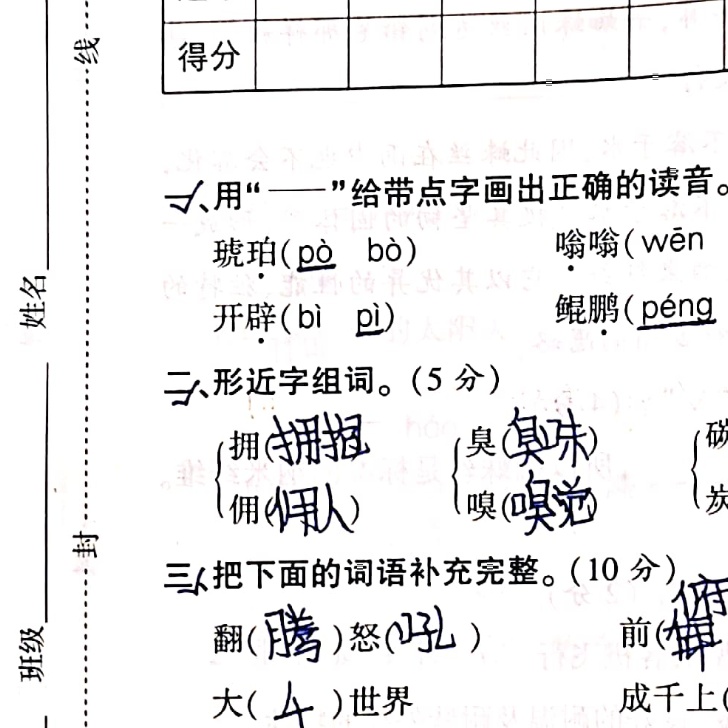 得分
一、用“——”给带点字画出正确的读音。
琥珀(pò bò) 嗡嗡(wēn
开辟(bì pì) 鲲鹏(péng
二、形近字组词。(5分)
拥(拥抱) 臭(臭味) 碳
佣(佣人) 嗅(嗅觉) 炭
三、把下面的词语补充完整。(10分)
翻(腾)怒(吼) 前(俯
大(千)世界 成千上(
线
姓名
封
班级